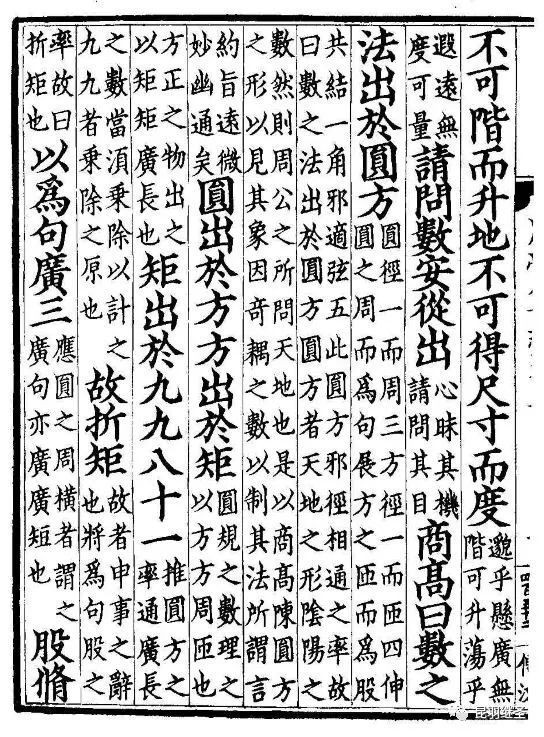 不可階而升地不可得尺寸而度邈乎懸廣無階可升蕩乎
遐遠無度可量請問數安從出心昧其機請問其目商高曰數之
法出於圓方圓徑一而周三方徑一而匝四伸圓之周而爲句展方之匝而爲股
共結一角邪適弦五此圓方邪徑相通之率故曰數之法出於圓方圓方者天地之形陰陽之
數然則周公之所問天地也是以商高陳圓方之形以見其象因奇耦之數以制其法所謂言
約旨遠微妙幽通矣圓出於方方出於矩圓規之數理之以方方周匝也
方正之物出之以矩矩廣長也矩出於九九八十一推圓方之率通廣長
之數當須乘除以計之九九者乘除之原也故折矩故者申事之辭也將爲句股之
率故曰折矩也以爲句廣三應圓之周橫者謂之廣句亦廣廣短也股脩
昆羽继圣